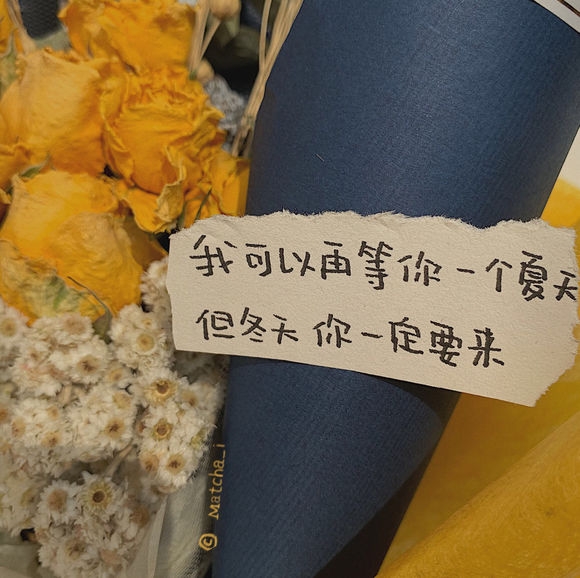 我可以再等你一个夏天
但冬天你一定要来
© Matcha_i